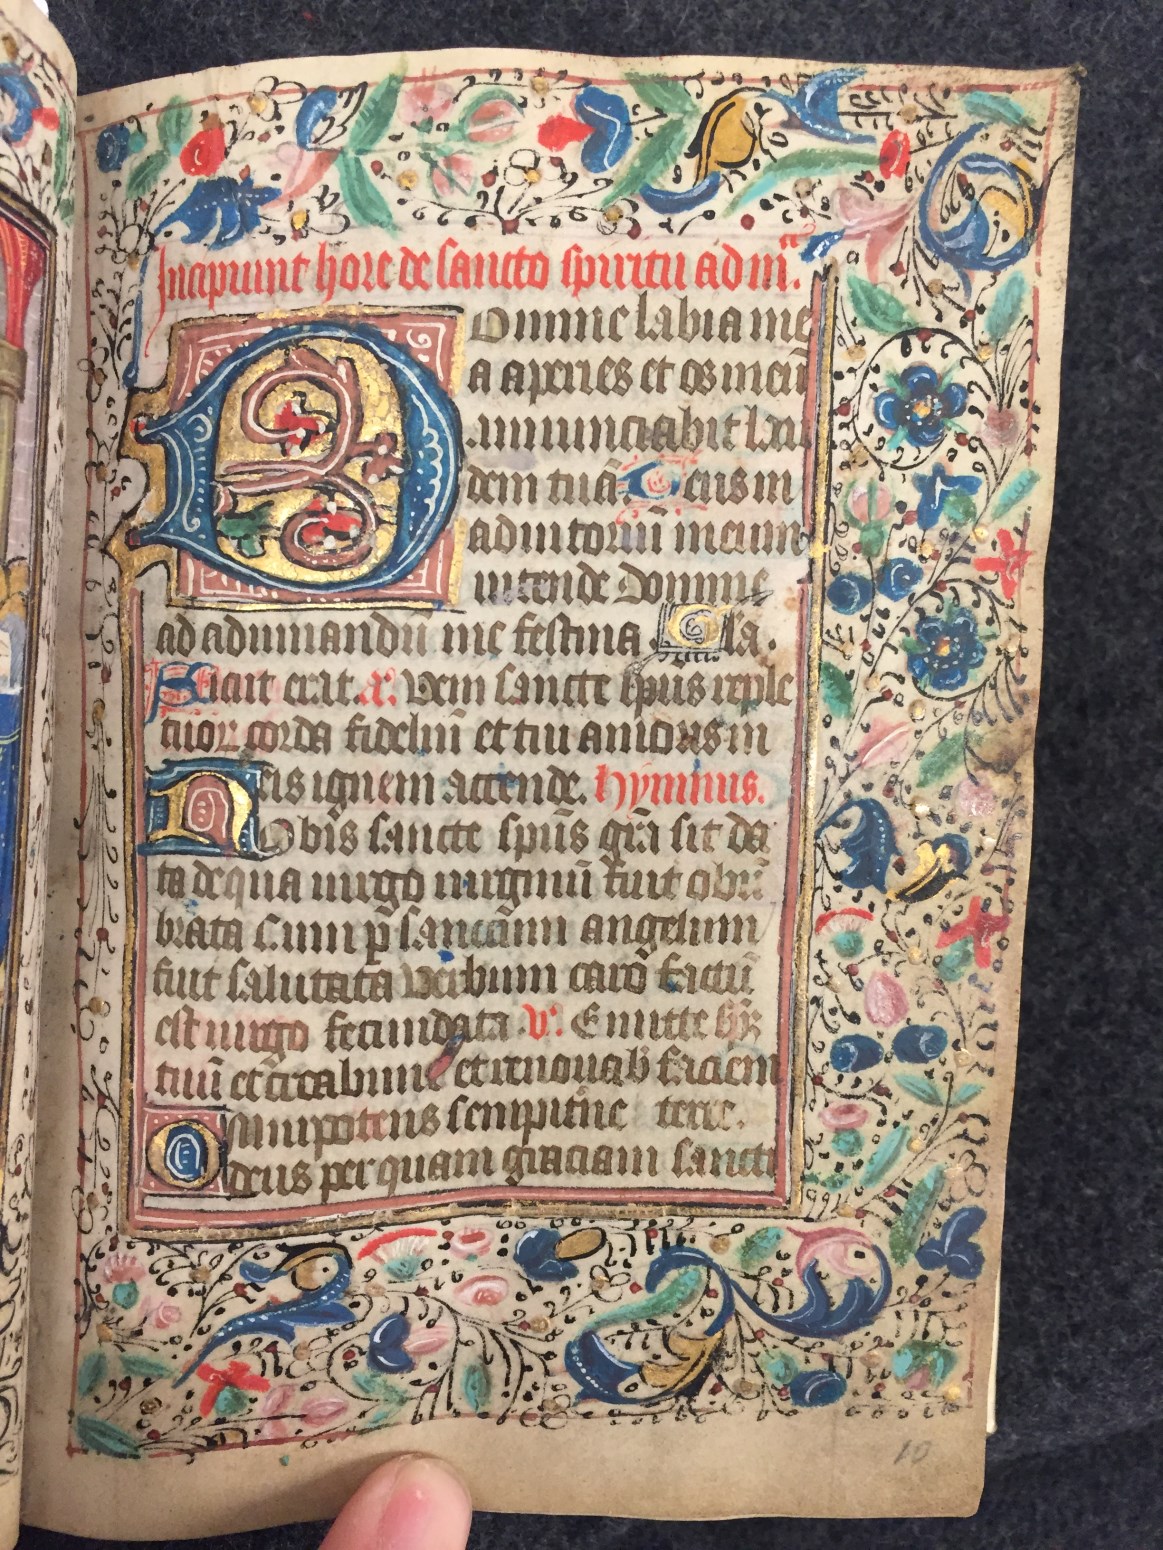 Incipiunt hore de sancto spiritu ad m̃.
Domine labia me
a aperies et os meũ
annunciabit lau
dem tuã Deus in
adiutoriũ meum
intende Domine
ad adiuuandũ me festina Gla.
Sicut erat. a. Veni sancte sp̃us reple
tuoꝝ corda fideliũ et tui amoris in
eis ignem accende. hymnus.
Nobis sancte spũs gr̃a sit da
ta de qua uirgo uirginũ fuit obũ
brata Cum p̲ sanctũm angelum
fuit salutata Verbum caro factũ
est uirgo fecundata v. Emitte
tuũ et creabunt et renouab faciem
Omnipotens sempit̃ne terre.
deus per quam graciam sancti
10